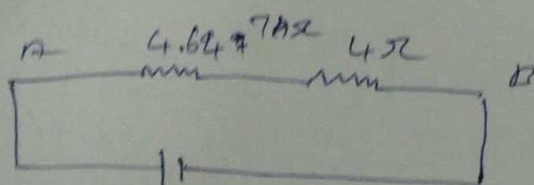 A 4.64 7 Ω 4Ω B